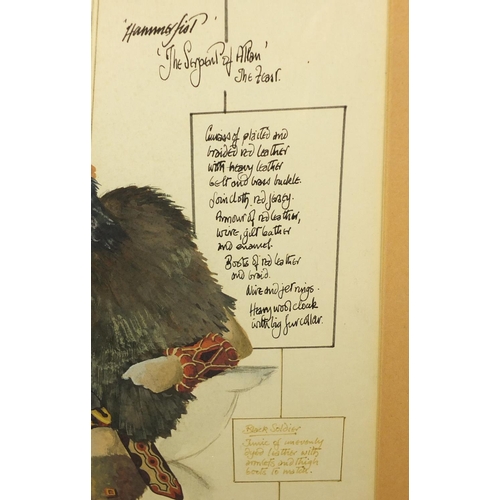 'Hammerfist'
'The Serpent of Altan'
The Feast.
Cuirass of plaited and
braided red leather
with heavy leather
belt and brass buckle.
Loin cloth, red jersey.
Armour of red leather,
wire, gilt leather
and enamel.
Boots of red leather
and braid.
Wire and jet rings.
Heavy wool cloak
with big fur collar.
Black Soldier
Tunic of
light leather with
armlets and thigh
boots to match.